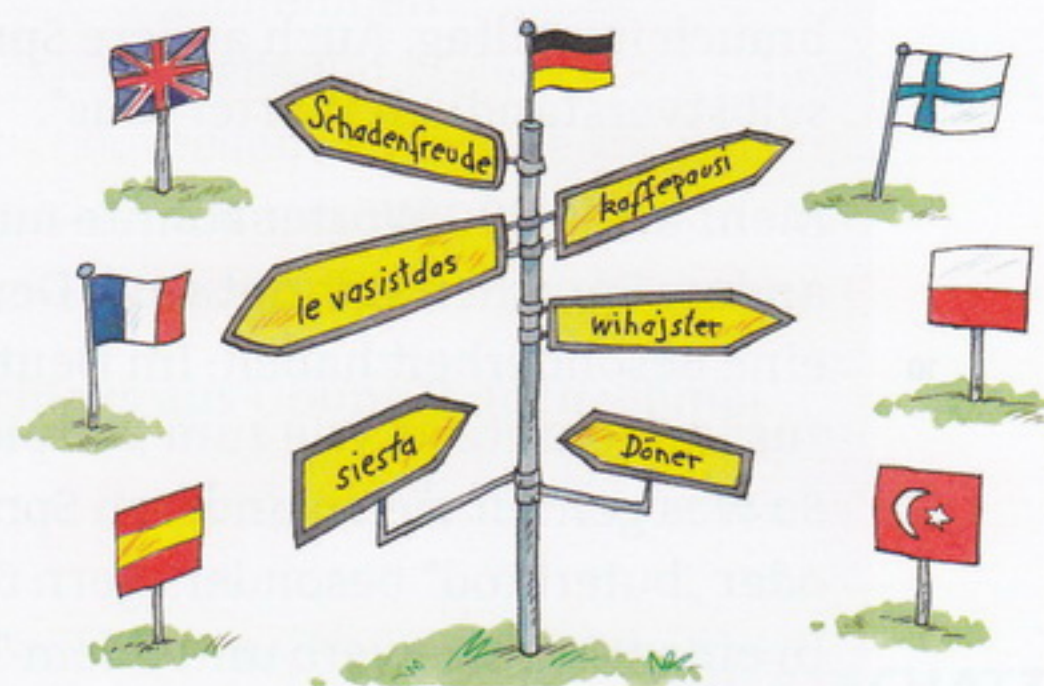 Schadenfreude
kaffepausi
le vasistdas
wihajster
siesta
Döner